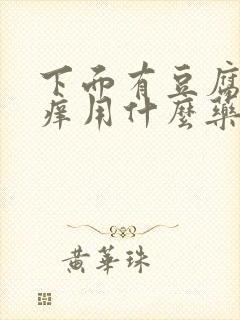 下面有豆腐
癢用什麼藥
黃華珠